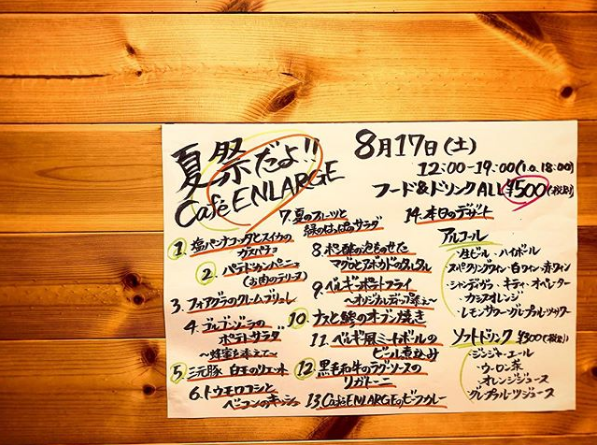 夏祭だよ!!
Café ENLARGE
8月17日(土)
12:00-19:00(l.o.18:00)
フード&ドリンクALL ¥500(税別)
1. 塩パンナコッタとスイカの
ガスパチョ
2. パテドカンパーニュ
(お肉のテリーヌ)
3. フォアグラのクレームブリュレ
4. ゴルゴンゾーラの
ポテトサラダ
〜蜂蜜を添えて〜
5. 三元豚 白モツのリエット
6. トウモロコシと
ベーコンのキッシュ
7. 夏のフルーツと
緑のはっぱのサラダ
8. ポン酢の泡をのせた
マグロとアボカドのタルタル
9. ベルギーポテトフライ
〜オリジナルディップ添え〜
10 ナスと鯵のオーブン焼き
11. ベルギー風ミートボールの
ビール煮込み
12. 黒毛和牛のラグーソースの
リガトーニ
13 Café ENLARGEのビーフカレー
14. 本日のデザート
アルコール
・生ビール・ハイボール
スパークリングワイン・白ワイン・赤ワイン
・シャンディガフ・キティ・オペレーター
・カシスオレンジ
・レモンサワー・グレープフルーツサワー
ソフトドリンク ¥300(税込)
・ジンジャーエール
・ウーロン茶
・オレンジジュース
・グレープフルーツジュース